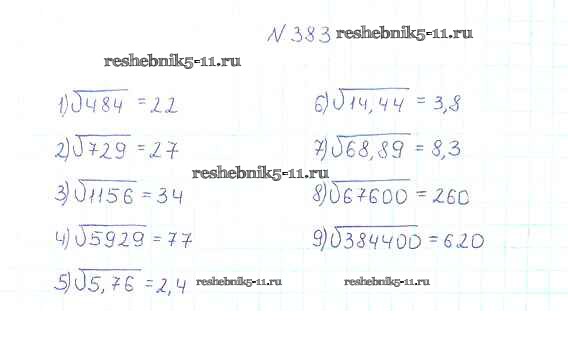 N 383 reshebnik5-11.ru
reshebnik5-11.ru
1) √484 = 22
2) √729 = 27
reshebnik5-11.ru
3) √1156 = 34
4) √5929 = 77
5) √5,76 = 2,4
reshebnik5-11.ru
6) √14,44 = 3,8
7) √68,89 = 8,3
8) √67600 = 260
9) √384400 = 620
reshebnik5-11.ru